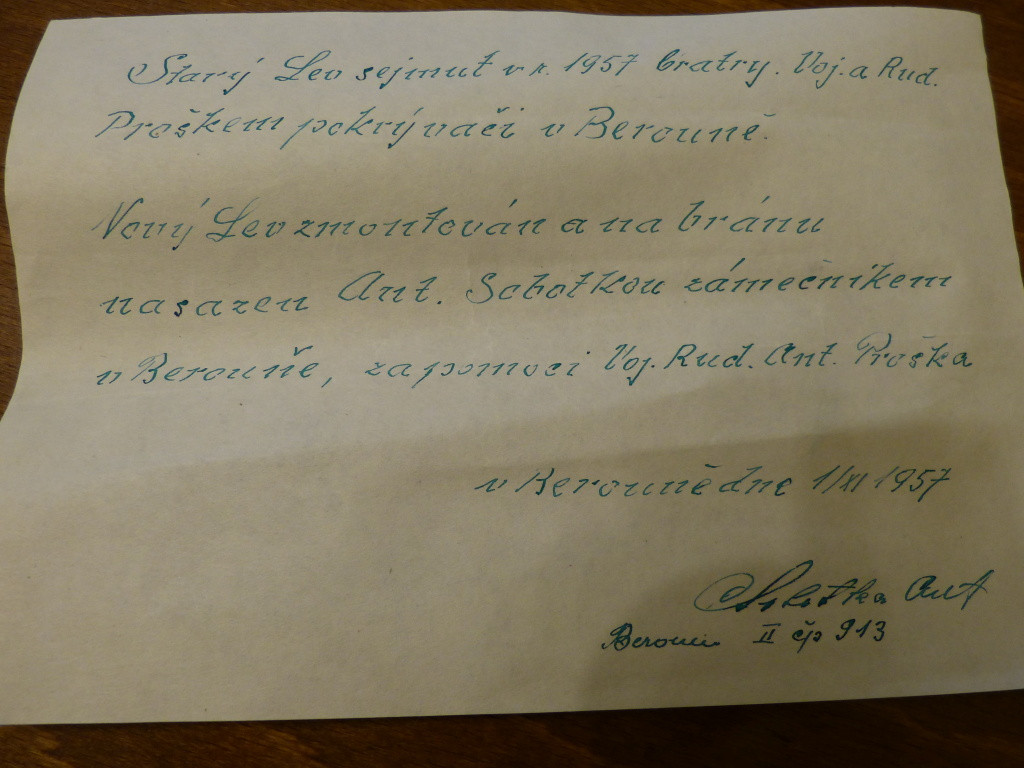 Starý Lev sejmut v r. 1957 bratry. Voj. a Rud.
Proškem pokrývači v Berouně.
Nový Lev zmontován a na bránu
nasazen Ant. Sobotkou zámečníkem
v Berouně, zapomoci Voj. Rud. Ant. Proška
v Berouně dne 1/XI 1957
Sobotka Ant
Beroun II čp 913